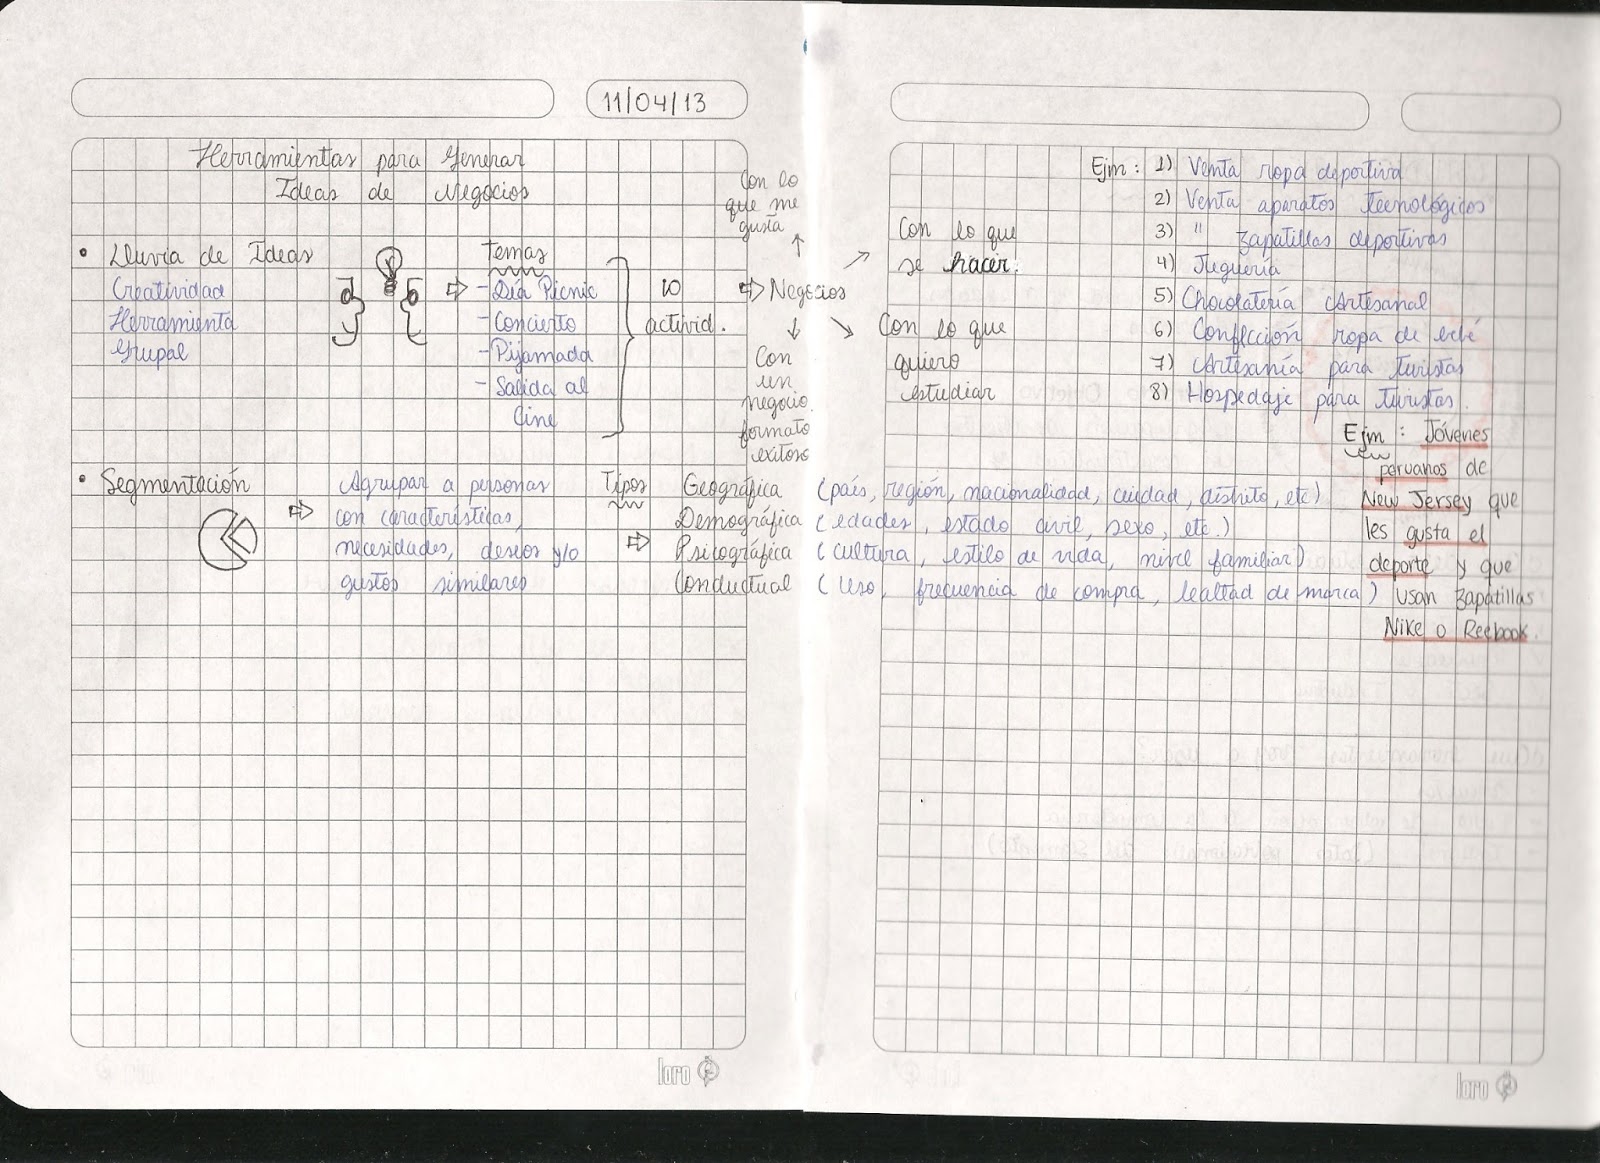 11/04/13
Herramientas para Generar
Ideas de Negocios
• Lluvia de Ideas
Creatividad
Herramienta
Grupal
Temas
- Día Picnic
- Concierto
- Pijamada
- Salida al
Cine
10
activid.
Negocios
Con lo
que me
gusta
Con
un
negocio
formato
exitoso
Con lo que
se hacer.
Con lo que
quiero
estudiar
Ejm: 1) Venta ropa deportiva
2) Venta aparatos tecnológicos
3) " zapatillas deportivas
4) Juguería
5) Chocolatería Artesanal
6) Confección ropa de bebé
7) Artesanía para turistas
8) Hospedaje para turistas.
• Segmentación
Agrupar a personas
con características,
necesidades, deseos y/o
gustos similares
Tipos
Geográfica (país, región, nacionalidad, ciudad, distrito, etc)
Demográfica (edades, estado civil, sexo, etc.)
Psicográfica (cultura, estilo de vida, nivel familiar)
Conductual (uso, frecuencia de compra, lealtad de marca)
Ejm: Jóvenes
peruanos de
New Jersey que
les gusta el
deporte y que
usan zapatillas
Nike o Reebook.
loro
loro